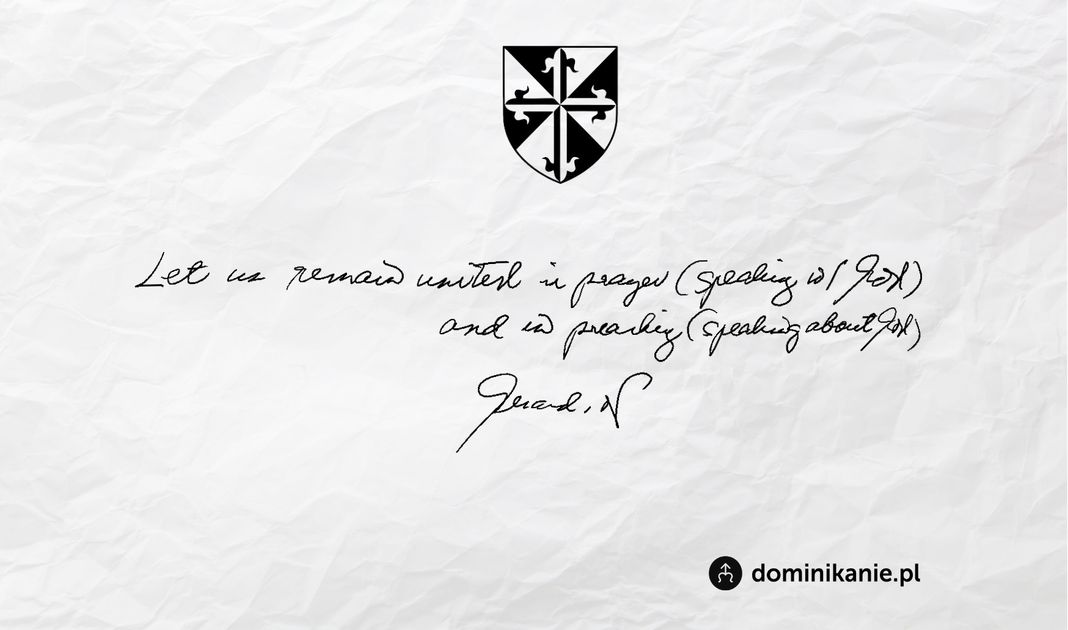 Let us remain united in prayer (speaking w/ God)
and in preaching (speaking about God)
Gerard,
dominikanie.pl